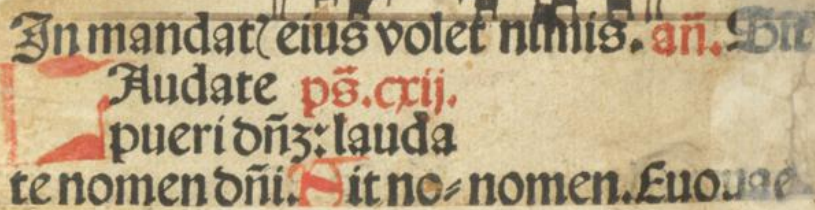 In mandat⁊ eius volet nimis. añ. Sit
LAudate ps̃.cxij.
pueri dñ̃ꝫ: lauda
te nomen dñi. Sit no⸗nomen. Euouae